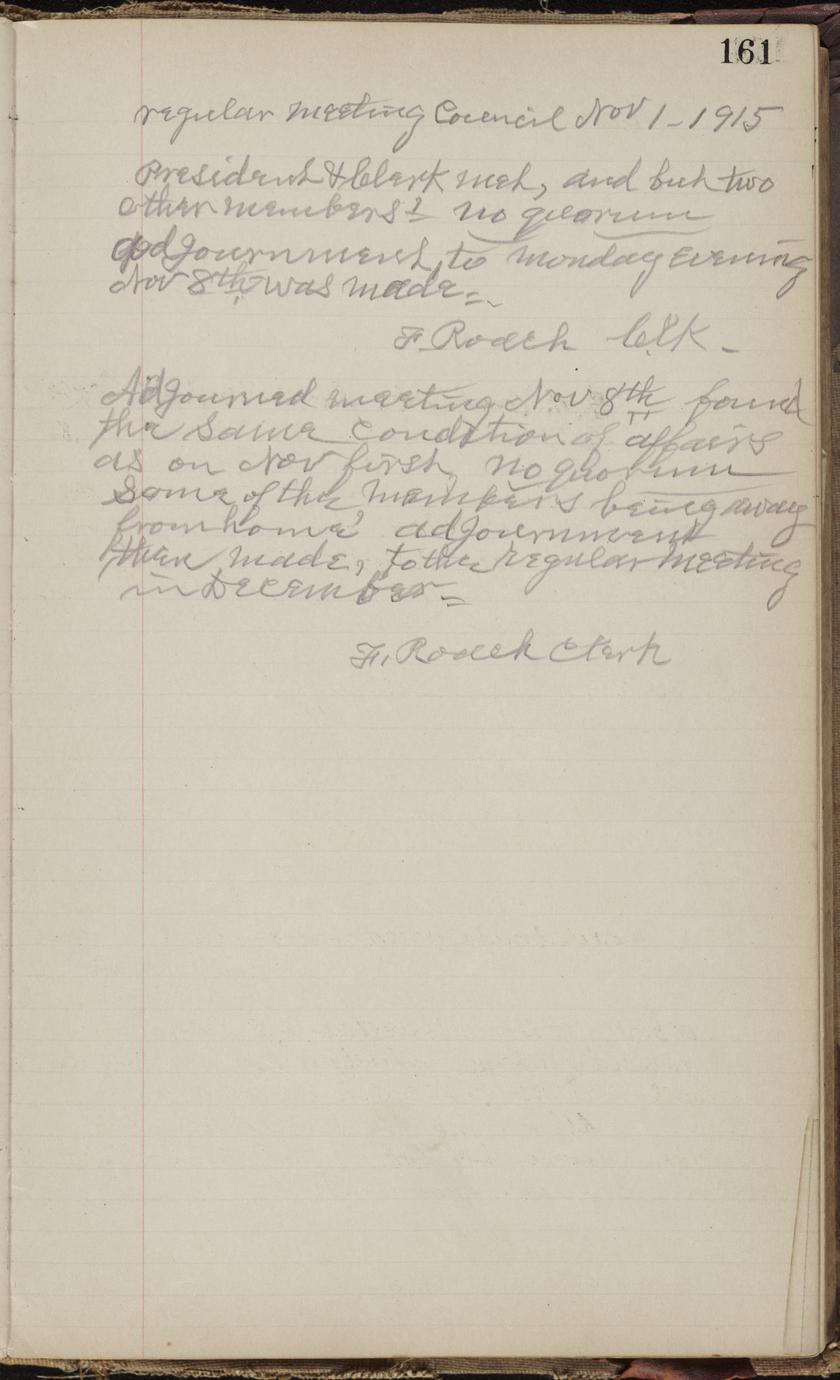 161
regular meeting Council Nov 1 - 1915
President & Clerk met, and but two
other members no quorum
adJournment to monday evening
Nov 8th was made =
F. Roach Clk -
AdJourned meeting Nov 8th found
the same condition of affairs
as on Nov first, no quorum
Some of the members being away
from home, adJournment
then made, to the regular meeting
in December =
F. Roach Clerk